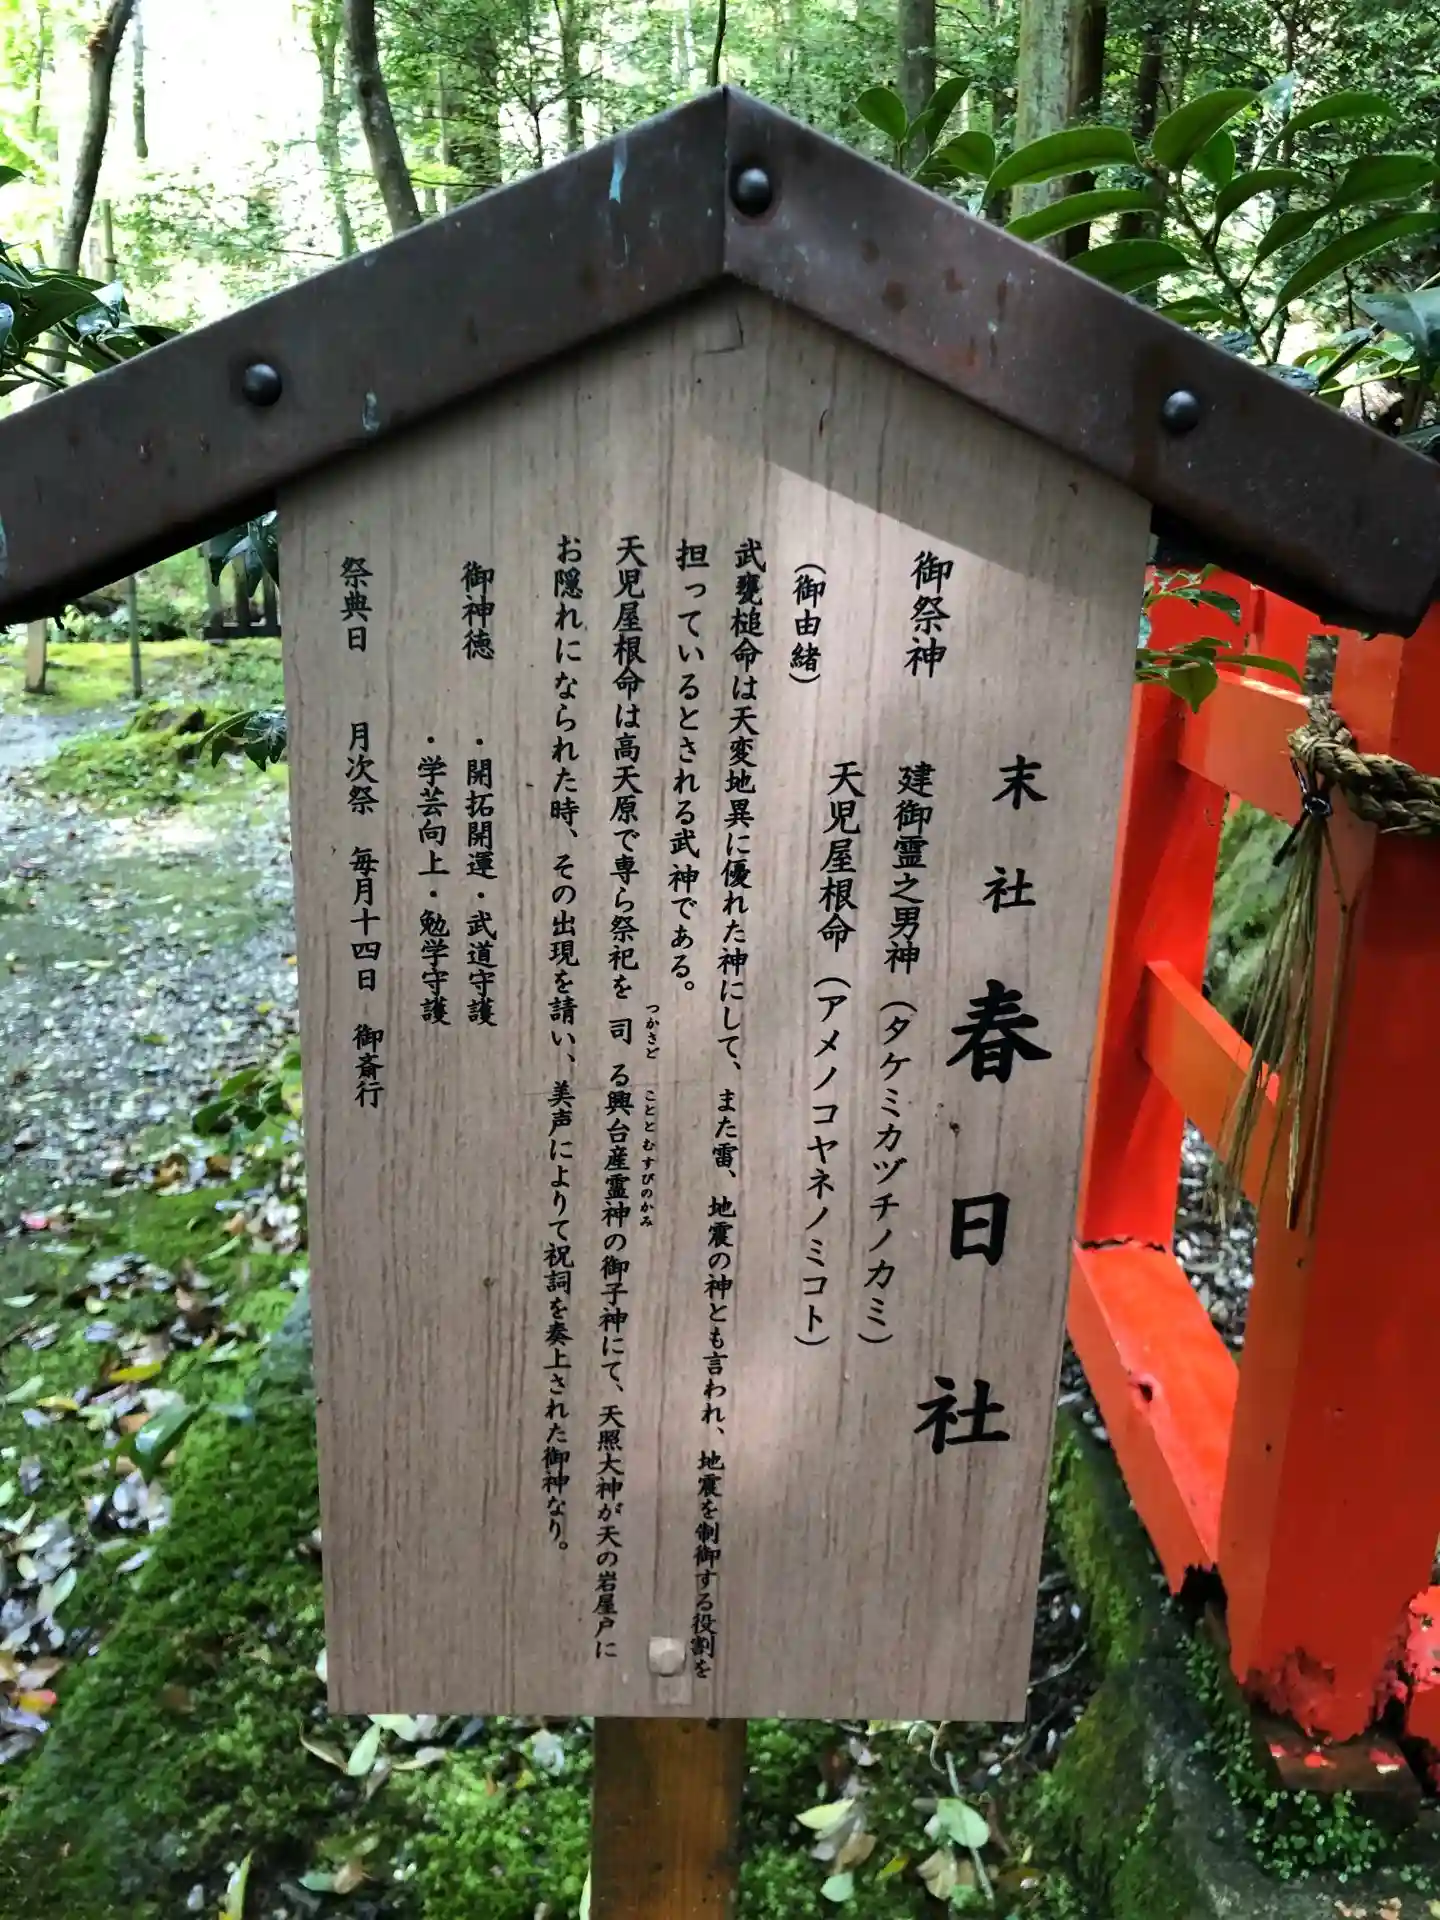 末社春日社
御祭神 建御霊之男神(タケミカヅチノカミ)
天児屋根命(アメノコヤネノミコト)
(御由緒)
武甕槌命は天変地異に優れた神にして、また雷、地震の神とも言われ、地震を制御する役割を
担っているとされる武神である。
つかさど こととむすびのかみ
天児屋根命は高天原で専ら祭祀を司る興台産霊神の御子神にて、天照大神が天の岩屋戸に
お隠れになられた時、その出現を請い、美声によりて祝詞を奏上された御神なり。
御神徳 ・開拓開運・武道守護
・学芸向上・勉学守護
祭典日 月次祭 毎月十四日 御斎行